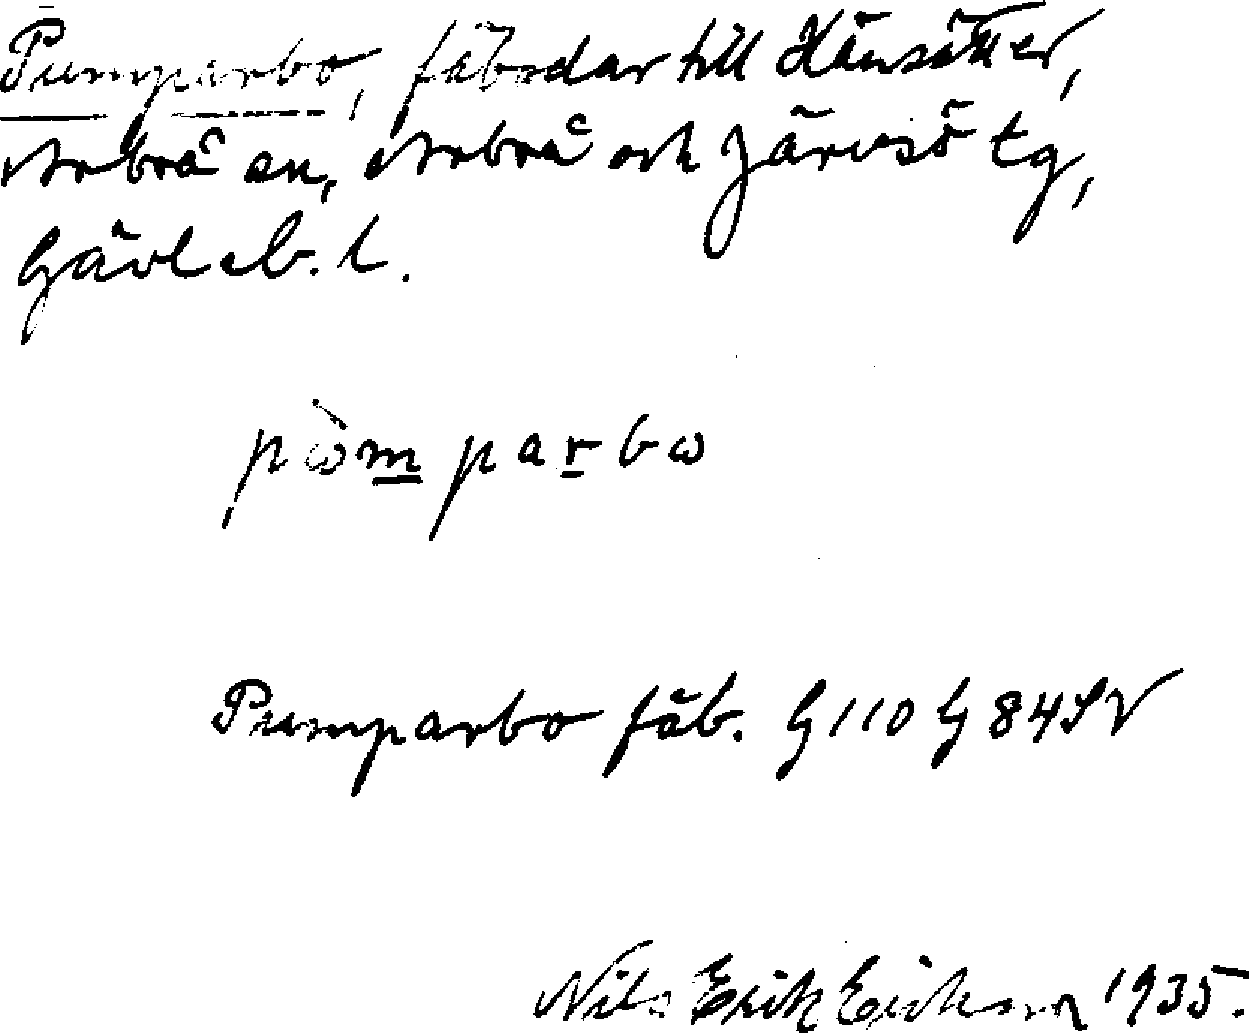 Pumparbo, fäbodar till Hänsätter,
Arbrå sn, Arbrå och Järvsö tg,
Gävleb. l.
pòmparbω
Pumparbo fäb. G110 G84SV
Nils Erik Eriksson 1935.